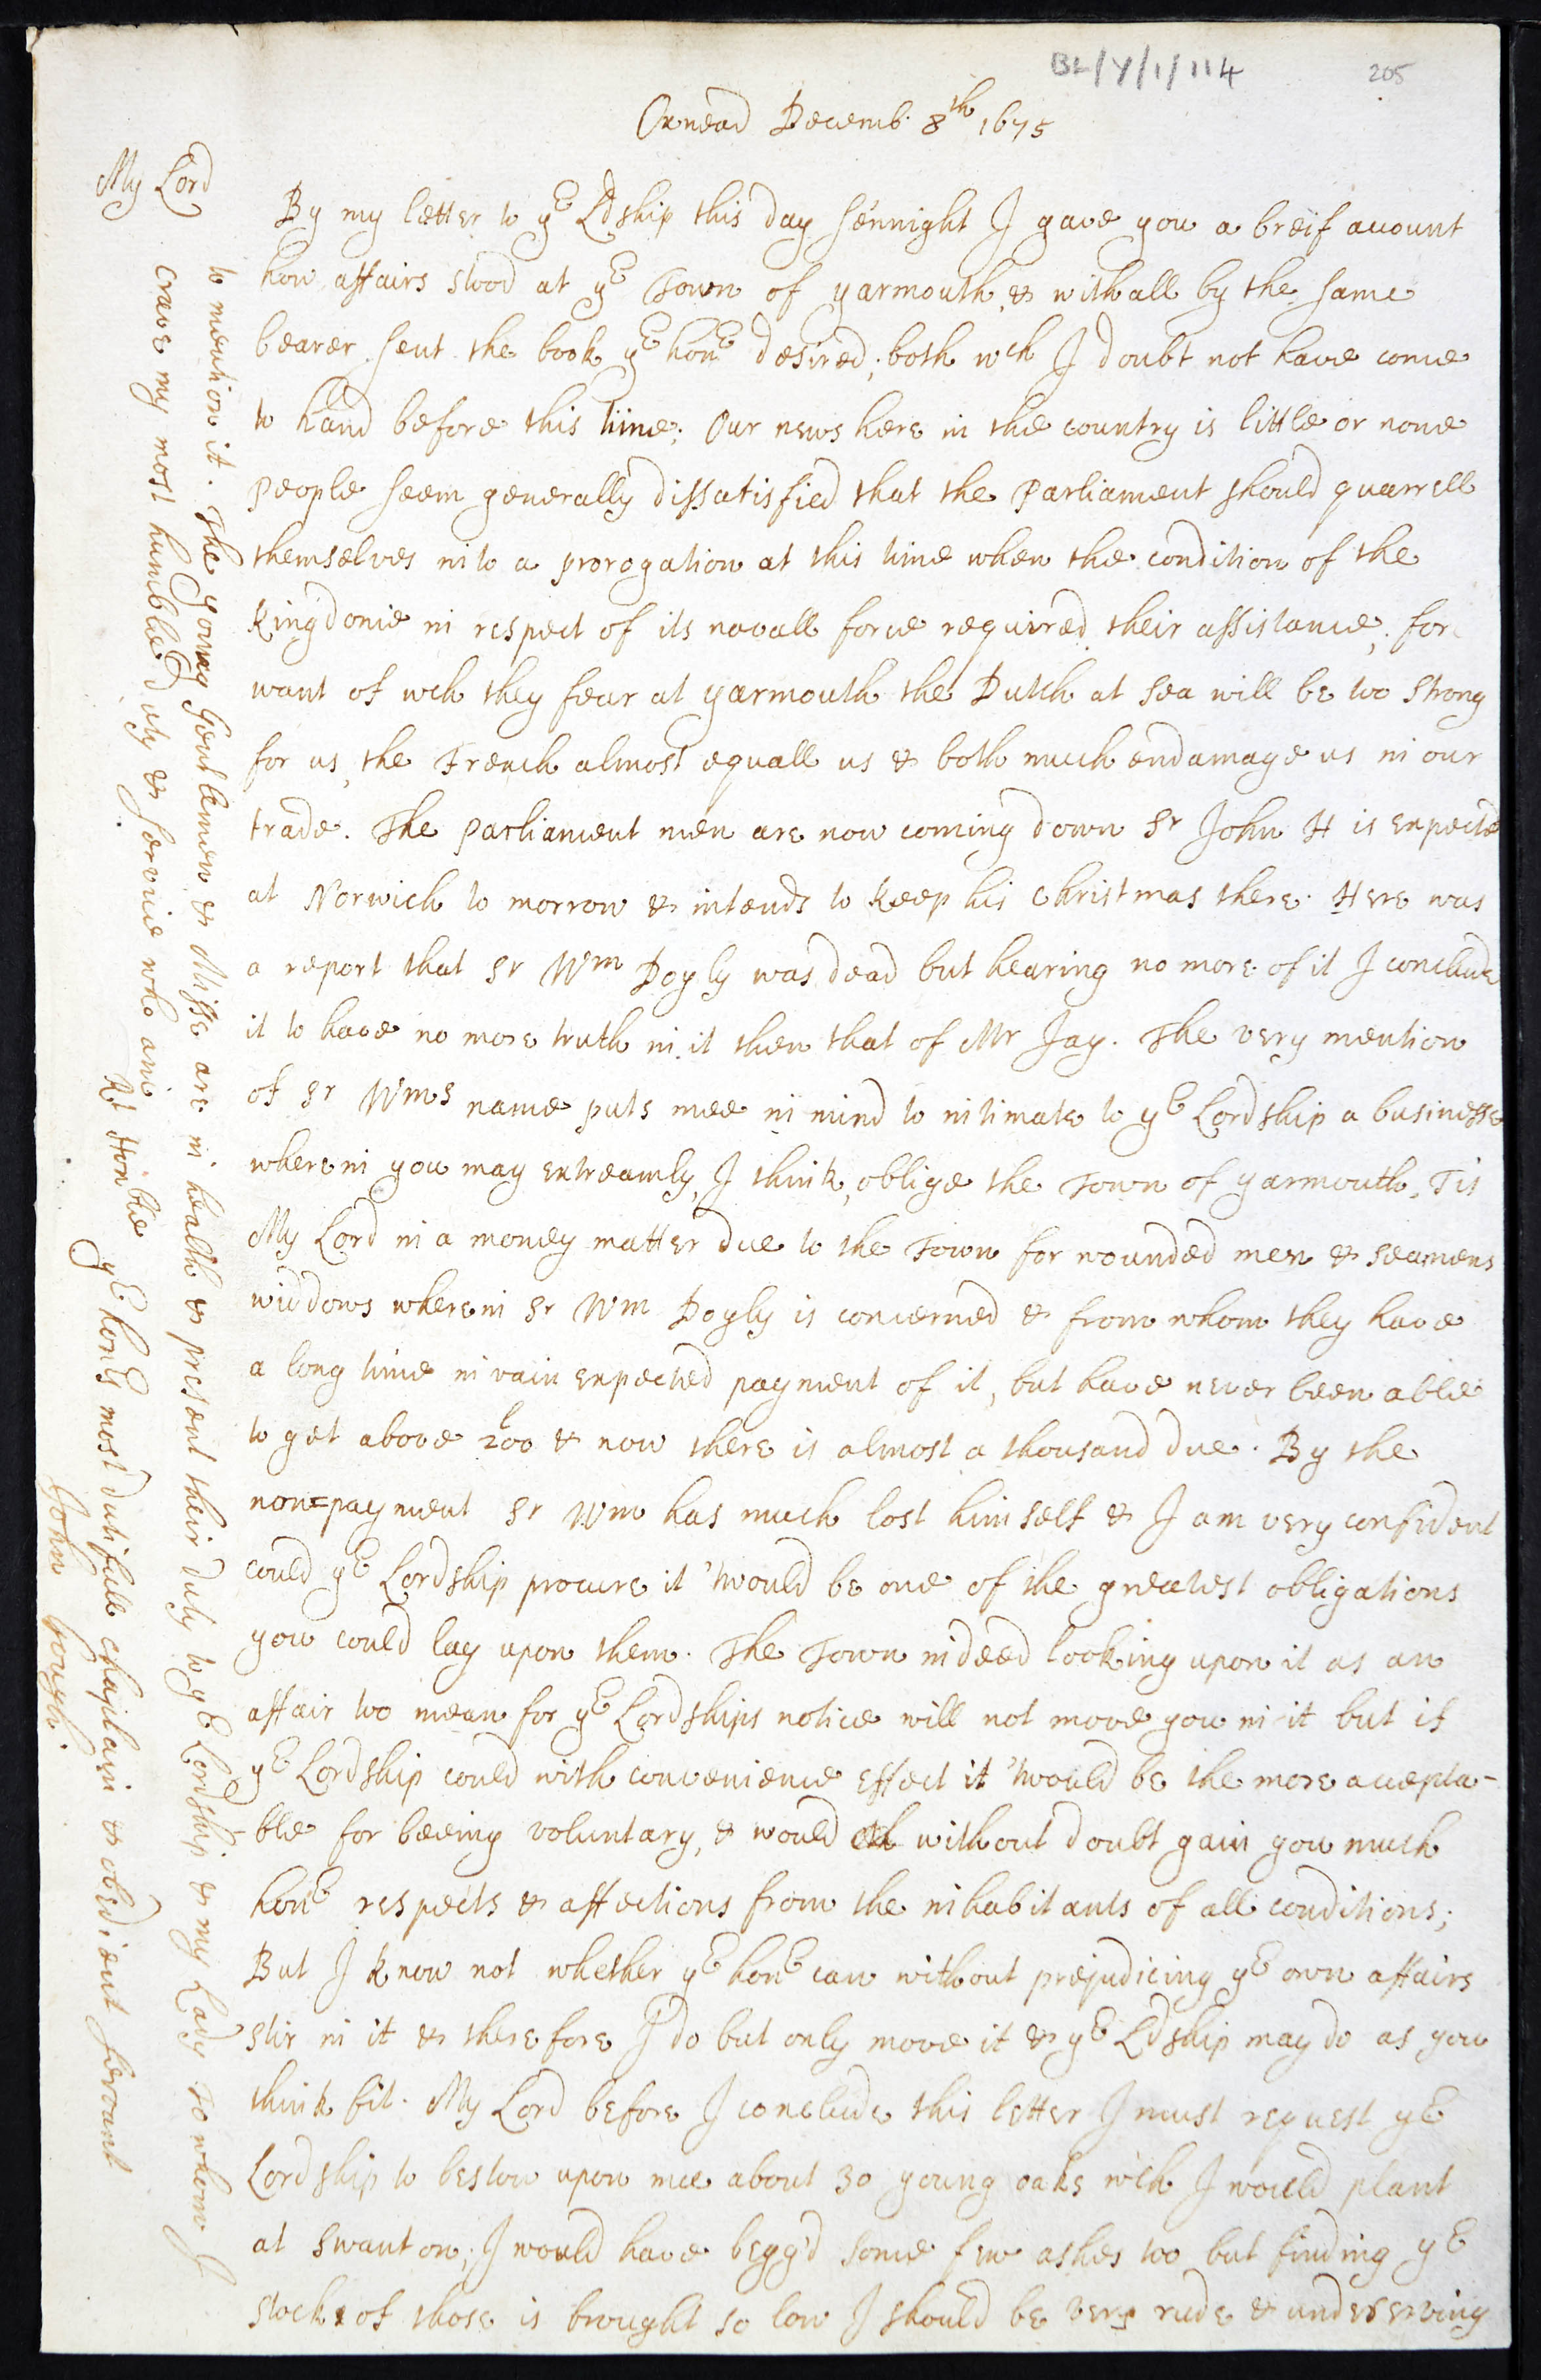 BL/Y/1/114
205
Oxnead Decemb. 8th 1675
My Lord
By my letter to yr Ldship this day sennight I gave you a breif account
how affairs stood at ye Town of yarmouth, & withall by the same
bearer sent the book yr honr desired; both wch I doubt not have come
to hand before this time; Our news here in the country is little or none
people seem generally dissatisfied that the Parliament should quarrell
themselves into a prorogation at this time when the condition of the
kingdome in respect of its navall force required their assistance; for
want of wch they fear at yarmouth the Dutch at sea will be too strong
for us, the French almost equall us & both much endamage us in our
trade. The Parliament men are now coming down Sr John H is expected
at Norwich to morrow & intends to keep his Christmas there. Here was
a report that Sr Wm Doyly was dead but hearing no more of it I conclude
it to have no more truth in it then that of Mr Jay. The very mention
of Sr Wms name puts mee in mind to intimate to yr Lordship a businesse
wherein you may extreamly, I think, oblige the Town of yarmouth, Tis
My Lord in a money matter due to the Town for wounded men & seamens
widdows wherein Sr Wm Doyly is concerned & from whom they have
a long time in vain expected payment of it, but have never been able
to get above 200l & now there is almost a thousand due. By the
non=payment Sr Wm has much lost himself & I am very confident
could yr Lordship procure it 'twould be one of the greatest obligations
you could lay upon them. The Town indeed looking upon it as an
affair too mean for yr Lordships notice will not move you in it but if
yr Lordship could with convenience effect it 'twould be the more accepta-
-ble for beeing voluntary, & would without doubt gain you much
honr respects & affections from the inhabitants of all conditions;
But I know not whether yr honr can without prejudicing yr own affairs
stir in it & therefore I do but only move it & yr Ldship may do as you
think fit. My Lord before I conclude this letter I must request yr
Lordship to bestow upon mee about 30 young oaks wch I would plant
at Swanton; I would have begg'd some few ashes too but finding yr
stock of those is brought so low I should be very rude & undeserving
to mention it. The young Gentlemen & Misse are in health & present their duty to yr Lordship & my Lady to whom I
crave my most humble duty & service who am
Rt Honble
yr honrs most dutifull chaplain & obedient servant
John Gough.